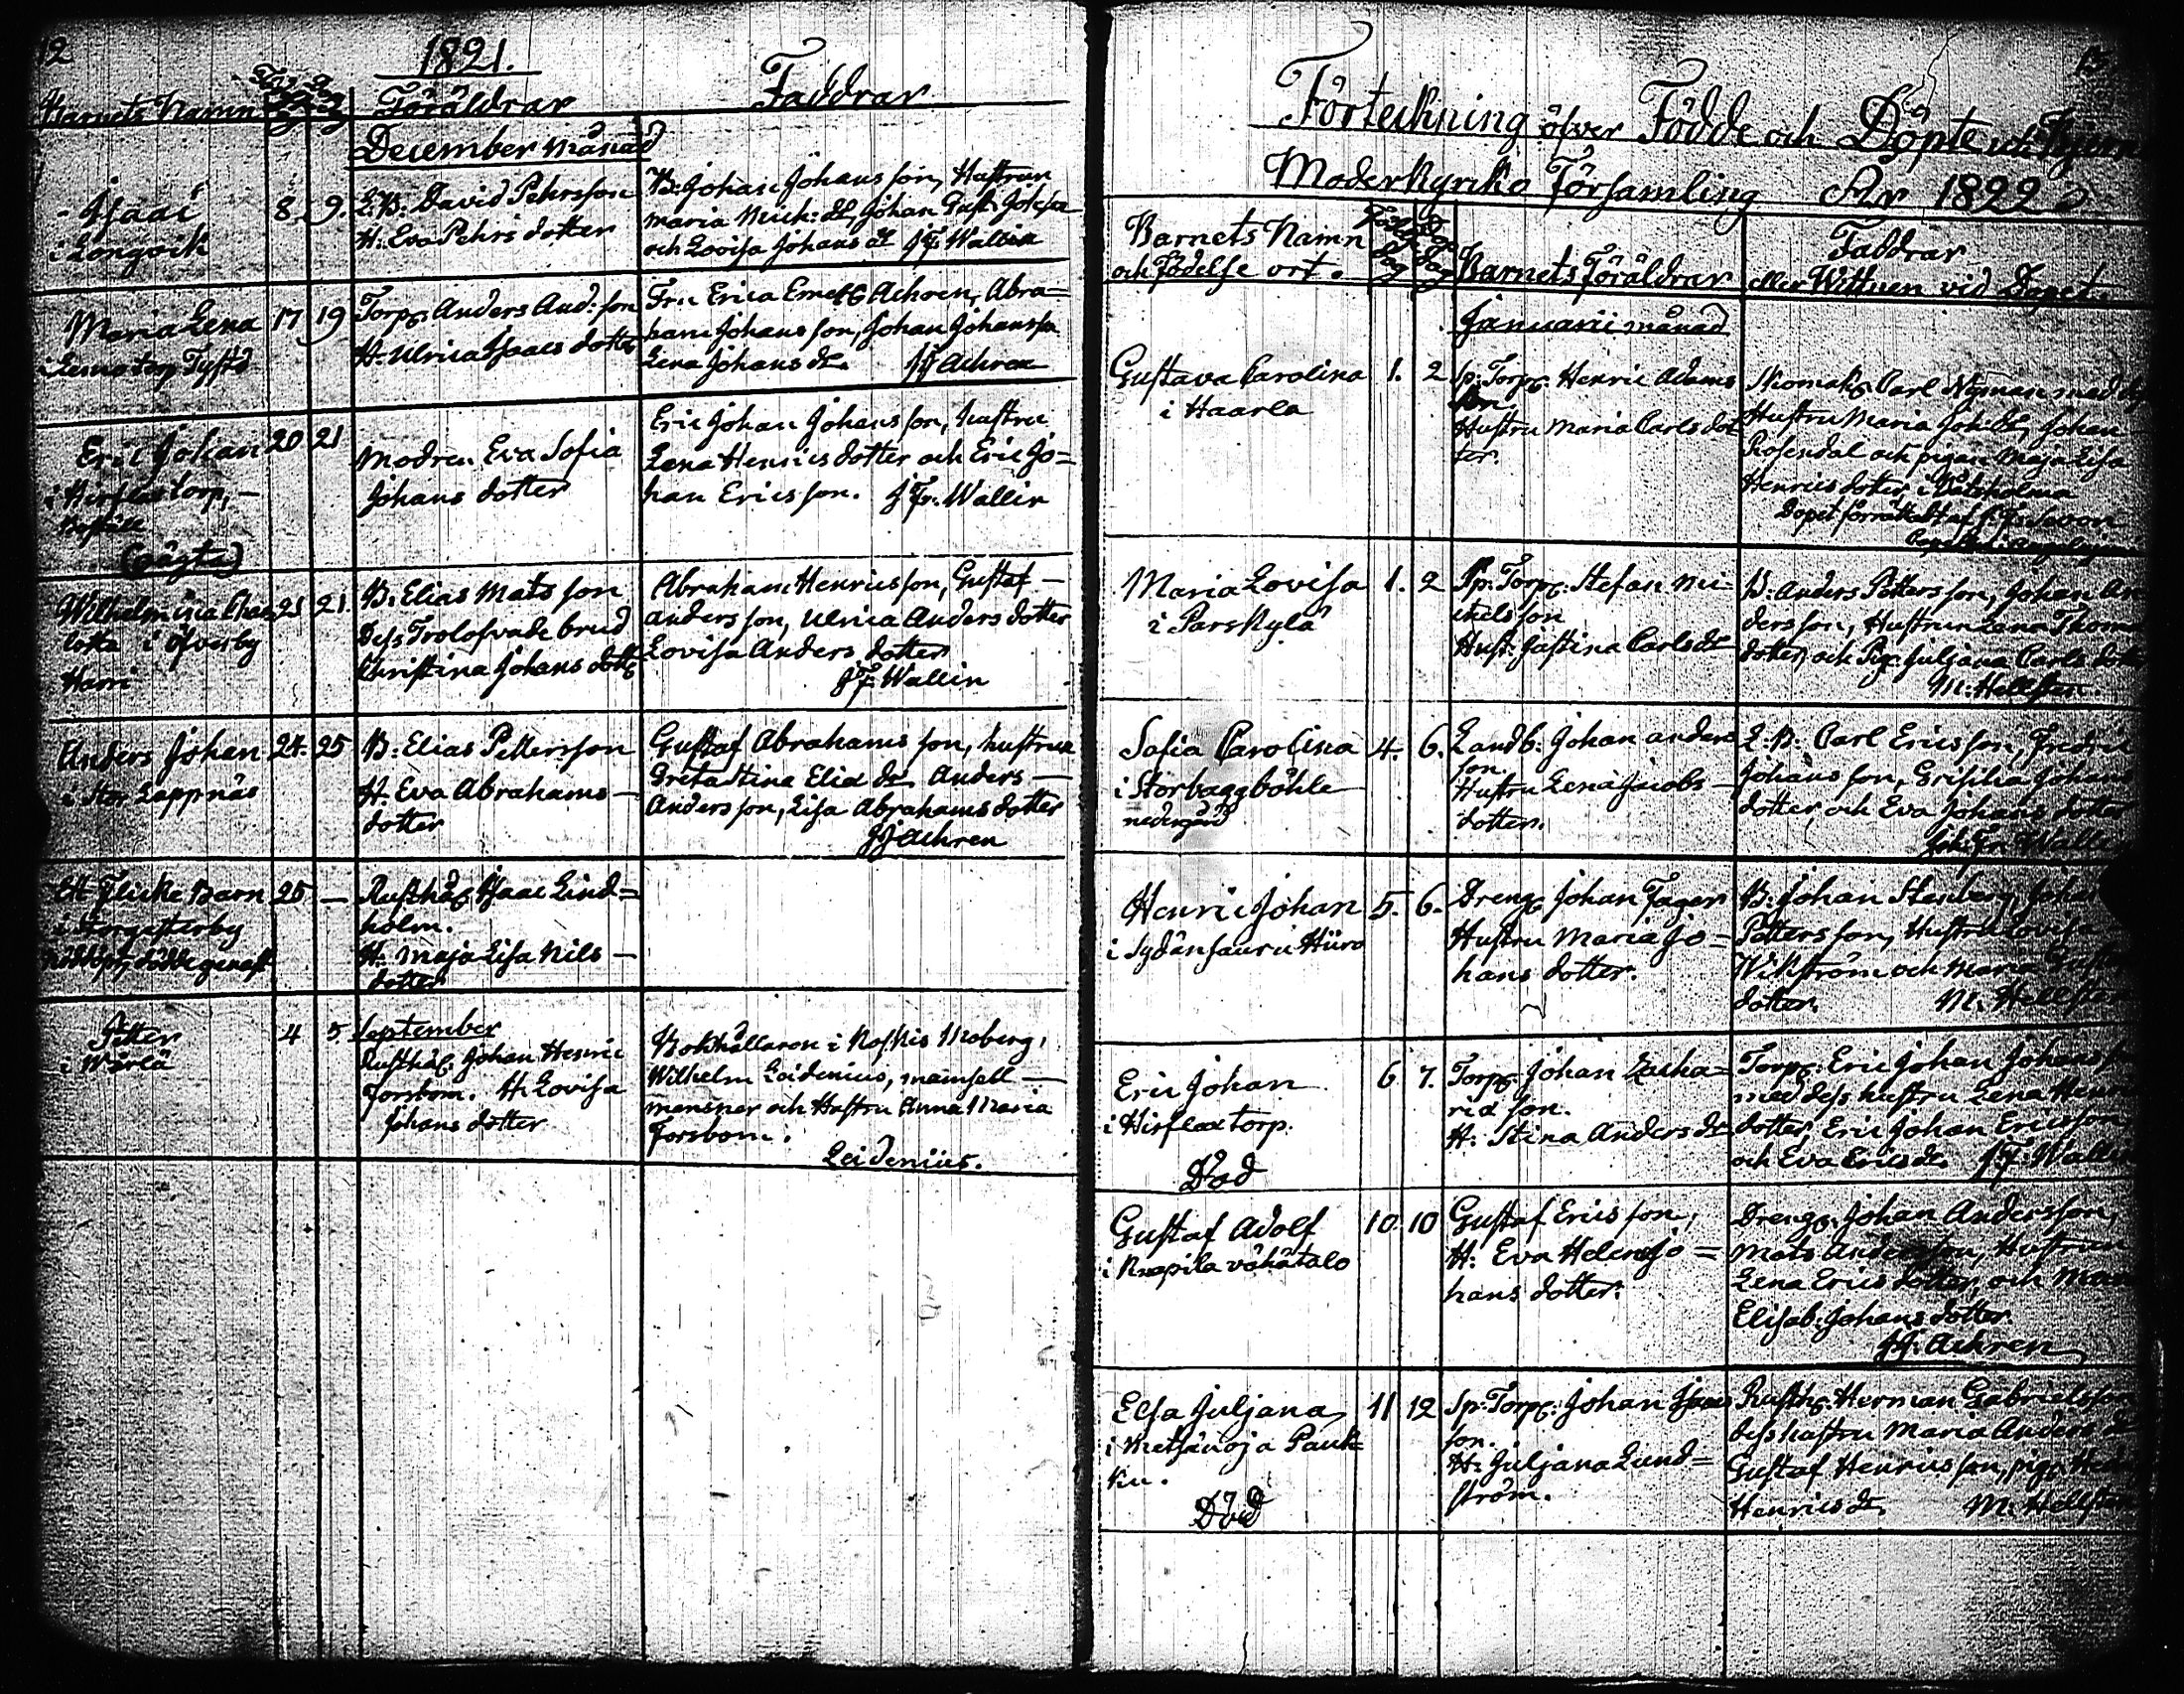 12
1821.
Barnets Namn
Föräldrar
Faddrar
December månad
Isaac
i Långvik
8. 9.
L:B: David Pehrsson
H: Eva Pehrs dotter
B: Johan Johansson, Hustrun
Maria Mich: dr, Johan Gust. Johsson
och Lovisa Johans dr J F: Wallin
Maria Lena
i Lemo torp
17 19
Torp. Anders And: son
H. Ulrica Isaacs dotter
Fru Erica Achren, Abra=
ham Johansson, Johan Johansson
Lena Johans dr. JJ Achren
Eric Johan
i Hirflax torp,
(oägta)
20 21
Modren Eva Sofia
Johans dotter
Eric Johan Johansson, hustru
Lena Henrics dotter och Eric Jo=
han Ericsson. J Fr. Wallin
Wilhelmina Char
lotta i Öfverby
Harri
21 21
B. Elias Matsson
Dess Trolofvade brud
Christina Johans dotter
Abraham Henricsson, Gustaf
Andersson, Ulrica Anders dotter
Lovisa Anders dotter
J F: Wallin
Anders Johan
i Stor Lappnäs
24. 25
B: Elias Pettersson
H. Eva Abrahams
dotter
Gustaf Abrahams son, hustrun
Greta Stina Elia dr Anders
Andersson, Lisa Abrahams dotter
JJ Achren
Ett Flicke Barn
i Storgesterby
nöddöpt, dödde genast
25 —
Rusthåll. Isaac Lind=
holm.
H: Maja Lisa Nils
dotter
Petter
i Wärlä
4 5
September
Rusthåll. Johan Henric
Forsbom. H. Lovisa
Johans dotter
Bokhållaren i Moberg,
Wilhelm Leidenius, mamsell
och Hustru Anna Maria
Forsbom.
Leidenius.
Förteckning öfver Födde och Döpte
Moderkyrko Församling År 1822
Barnets Namn
och Födelse ort.
Barnets Föräldrar
Faddrar
eller Wittnen vid Dopet.
Januarii månad
Gustava Carolina
i Haarla
1. 2
Sp: Torp. Henric Adams
son
Hustru Maria Carls dot
ter.
Skomak. Carl Nyman med
Hustru Maria Joh. dr, Johan
Rosendal och pigan Maja Lisa
Henrics dotter i
Dopet förrättadt af
Maria Lovisa
i Parskylä
1. 2
Sp: Torp: Stefan Mi=
chelsson
Hust: Justina Carls dr
B: Anders Pettersson, Johan An
dersson, Hustrun Lena Thom
dotter, och Pig. Juljana Carls dotter
M: Hellsten.
Sofia Carolina
i Storbaggböhle
nedergård
4. 6.
Landb: Johan Anders
son.
Hustru Lena Jacobs
dotter.
L:B: Carl Ericsson, Fredric
Johansson, Johans
dotter, och Eva Johans dotter
Joh: Fr: Wallin
Henric Johan
i Sydänsauri
5. 6.
Dreng. Johan Fager
Hustru Maria Jo=
hans dotter.
B: Johan Stenberg, Johan
Pettersson, Hustru Lovisa
Wikström och Maria
dotter. M: Hellsten
Eric Johan
i Hirflax torp.
Död
6 7.
Torp. Johan Zacha=
ria son.
H: Stina Anders dr
Torp. Eric Johan Johansson
med dess hustru Lena Henr
dotter, Eric Johan Ericsson
och Eva Erics dr J F: Wallin
Gustaf Adolf
i Knapila vähätalo
10 10
Gustaf Ericsson,
H: Eva Helena Jo=
hans dotter.
Dreng. Johan Andersson,
Mats Andersson, Hustrun
Lena Erics dotter, och
Elisab. Johans dotter.
JJ. Achren
Elsa Juljana
i Metsänoja Pauk
ku.
Död
11 12
Sp: Torp: Johan Isaacs
son.
H: Juljana Lund=
ström.
Rusth. Herman Gabrielsson
dess hustru Maria Anders dr
Gustaf Henricsson, pig.
Henrics dr M. Hellsten